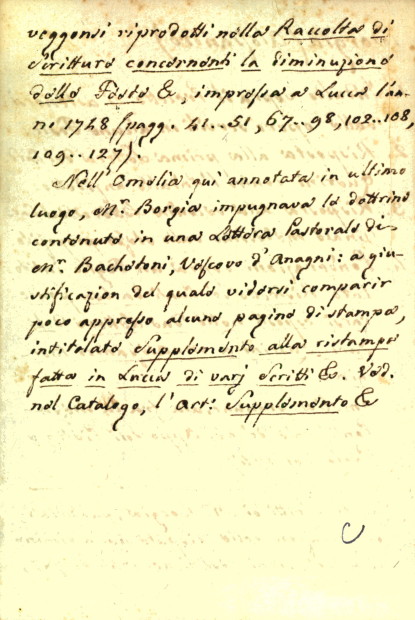 veggonsi riprodotti nella Raccolta di
Scritture concernenti la diminuzione
delle Feste &, impressa a Lucca l'an-
no 1748 (pagg. 41..51, 67..98, 102..108,
109..127).
Nell'Omelia qui annotata in ultimo
luogo, Mr. Borgia impugnava le dottrine
contenute in una Lettera Pastorale di
Mr. Bachetoni, Vescovo d'Anagni: a giu-
stificazion del quale vidersi comparir
poco appresso alcune pagine di stampa,
intitolate Supplemento alla ristampa
fatta in Lucca di varj Scritti &. Ved.
nel Catalogo, l'Art: Supplemento &